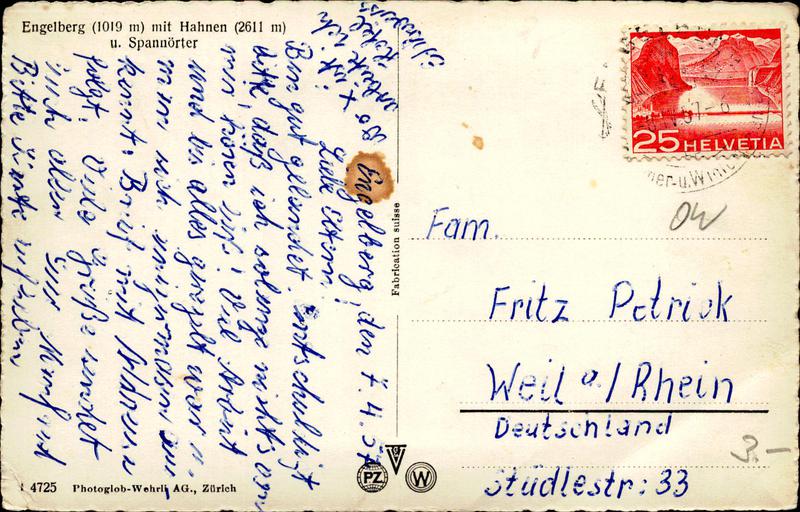 Engelberg (1019 m) mit Hahnen (2611 m)
u. Spannörter
Engelberg, den 7. 4. 57
Liebe Eltern!
Bin gut gelandet. Entschuldigt
bitte, daß ich solange nichts von
mir hören ließ. Viel Arbeit
und bis alles geregelt war u.
man sich
kennt. Brief mit
folgt. Viele Grüße sendet
Euch allen Euer Manfred
Bitte Karte aufheben
Wo x ist
ich
Fabrication suisse
25 HELVETIA
OW
Fam.
Fritz Petrick
Weil a/Rhein
Deutschland
Städlestr: 33
3.-
PZ
W
4725 Photoglob-Wehrli AG., Zürich